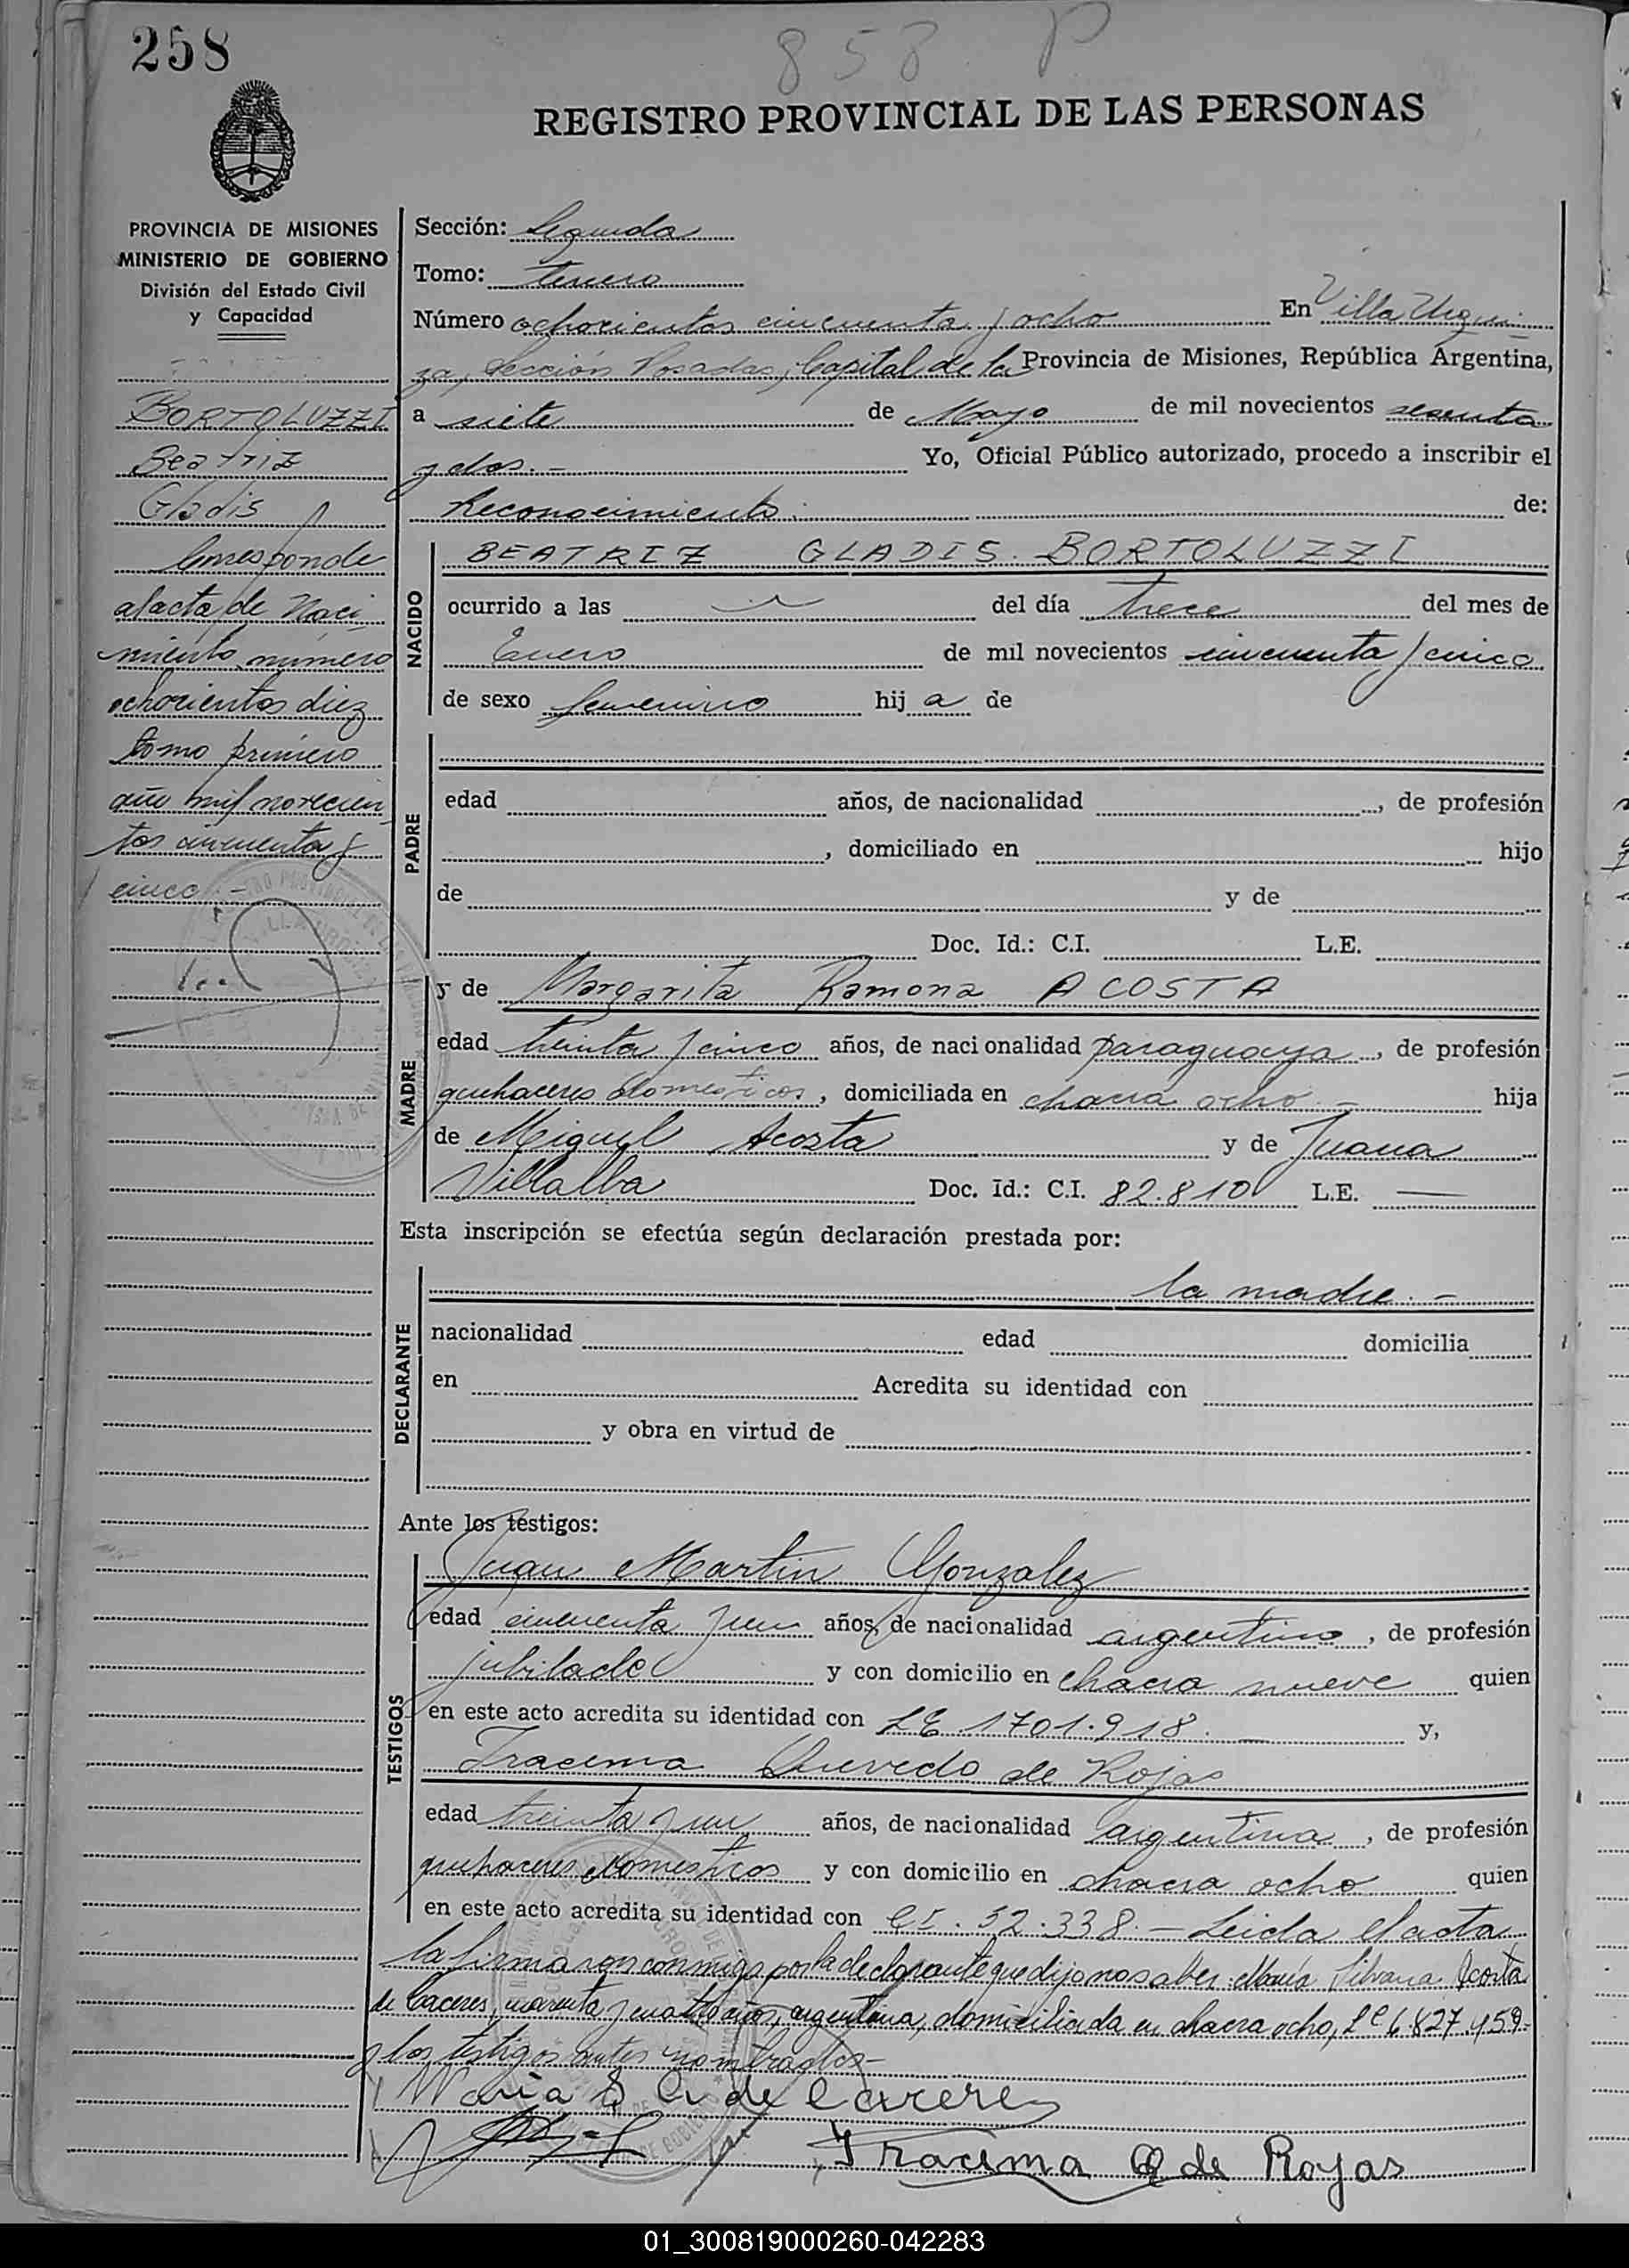 258
858 P
REGISTRO PROVINCIAL DE LAS PERSONAS
PROVINCIA DE MISIONES
MINISTERIO DE GOBIERNO
División del Estado Civil
y Capacidad
BORTOLUZZI
Beatriz
Gladis
Corresponde
al acta de Naci
miento número
ochocientos diez
tomo primero
año mil novecien
tos cincuenta y
cinco.-
Sección: Segunda
Tomo: tercero
Número ochocientos cincuenta y ocho En Villa Urqui
za, Sección Posadas, Capital de la Provincia de Misiones, República Argentina,
a siete de Mayo de mil novecientos sesenta
y dos.- Yo, Oficial Público autorizado, procedo a inscribir el
Reconocimiento de:
NACIDO
BEATRIZ GLADIS BORTOLUZZI
ocurrido a las del día trece del mes de
Enero de mil novecientos cincuenta y cinco
de sexo femenino hij a de
PADRE
edad años, de nacionalidad , de profesión
, domiciliado en hijo
de y de
Doc. Id.: C.I. L.E.
MADRE
y de Margarita Ramona ACOSTA
edad treinta y cinco años, de nacionalidad paraguaya, de profesión
quehaceres domesticos, domiciliada en chacra ocho - hija
de Miguel Acosta y de Juana
Villalba Doc. Id.: C.I. 82.810 L.E. —
Esta inscripción se efectúa según declaración prestada por:
DECLARANTE
la madre.-
nacionalidad edad domicilia
en Acredita su identidad con
y obra en virtud de
Ante los testigos:
TESTIGOS
Juan Martin Gonzalez
edad cincuenta y un años, de nacionalidad argentino, de profesión
jubilado y con domicilio en chacra nueve quien
en este acto acredita su identidad con LE 1701.918. y,
Iracema Quevedo de Rojas
edad treinta y un años, de nacionalidad argentina, de profesión
quehaceres domesticos y con domicilio en chacra ocho quien
en este acto acredita su identidad con CI. 52.338.- Leida el acta
la firmaron conmigo por la declarante que dijo no saber: María Silvana Acosta
de Caceres, cuarenta y cuatro años, argentina, domiciliada en chacra ocho, LC 6.827.459.
y los testigos antes nombrados-
Maria S A de Caceres
Iracema Q de Rojas
01_300819000260-042283